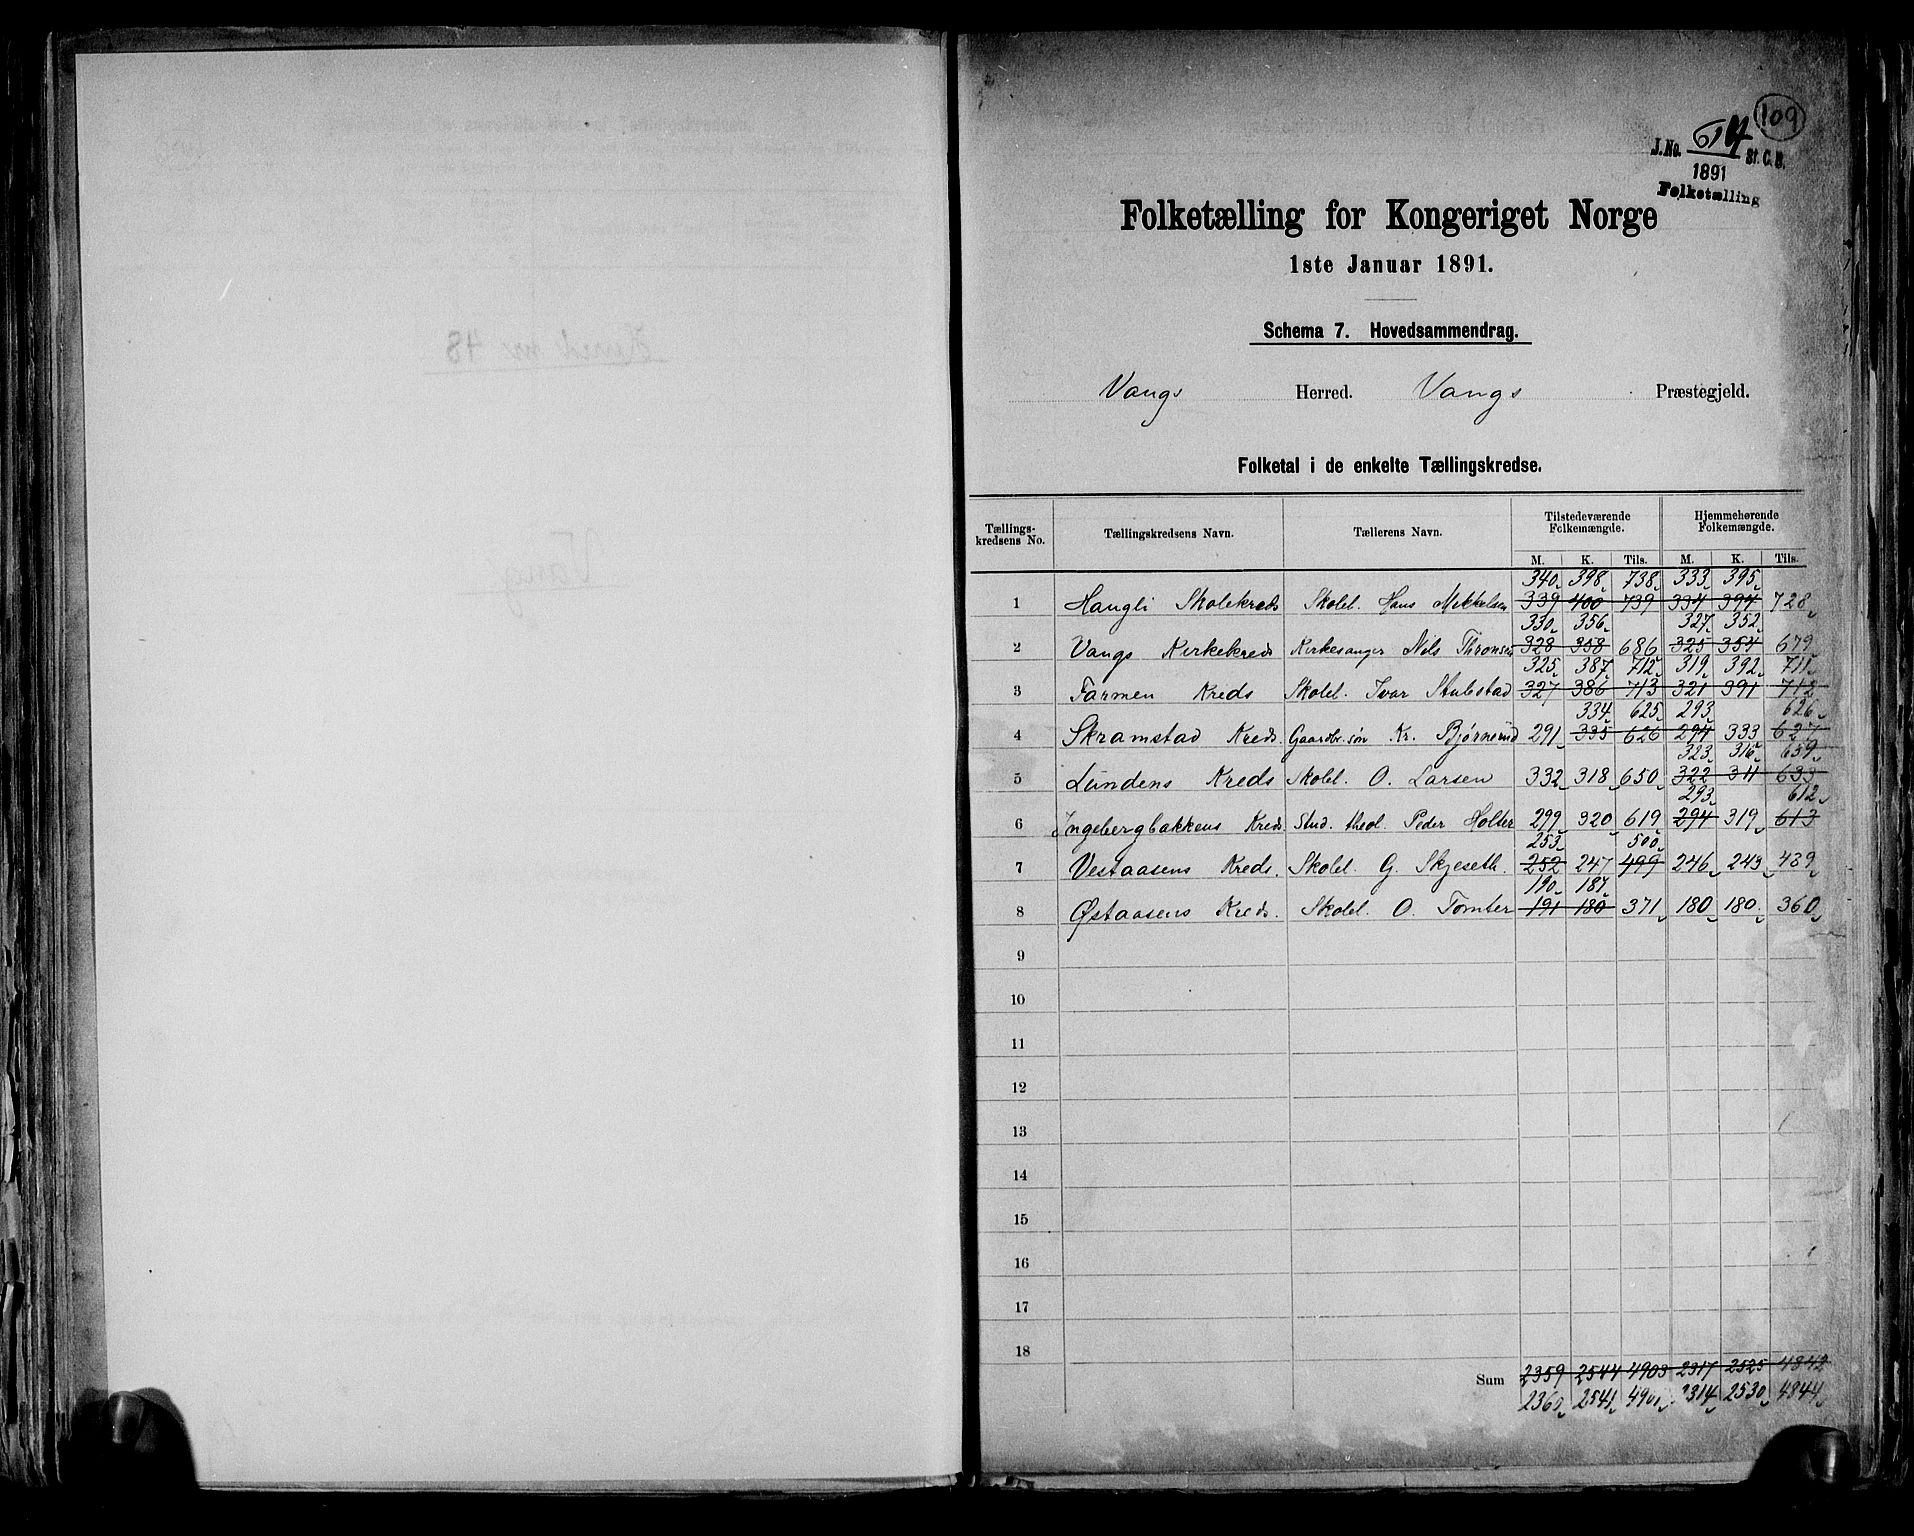 109
J.No. 614 St. C. B.
1891
Folketælling
Folketælling for Kongeriget Norge
1ste Januar 1891.
Schema 7. Hovedsammendrag.
Vangs Herred. Vangs Præstegjeld.
Folketal i de enkelte Tællingskredse.
Tællings-kredsens No. Tællingskredsens Navn. Tællerens Navn. Tilstedeværende Folkemængde. Hjemmehørende Folkemængde.
M. K. Tils. M. K. Tils.
340 398 738 333 395
1 Haugli Skolekreds Skolel. Hans Mikkelsen 339 400 739 334 394 728
330 356 327 352
2 Vangs Kirkekreds Kirkesanger Nils Thronsen 328 358 686 325 354 679
325 387 712 319 392 711
3 Farmen Kreds Skolel. Ivar Stubstad 327 386 713 321 391 712
334 625 293 626
4 Skramstad Kreds. Gaardbr.søn Kr. Bjørnerud 291 335 626 294 333 627
323 316 639
5 Lundens Kreds Skolel. O. Larsen 332 318 650 322 311 633
293 612
6 Ingebergbakkens Kreds Stud. theol. Peder Holter 299 320 619 294 319 613
253 500
7 Vestaasens Kreds. Skolel. G. Skjeseth. 252 247 499 246 243 489
190 181
8 Østaasens Kreds. Skolel. O. Tomter 191 180 371 180 180 360
9
10
11
12
13
14
15
16
17
18
Sum 2359 2544 4903 2317 2525 4842
2360 2541 4901 2314 2530 4844